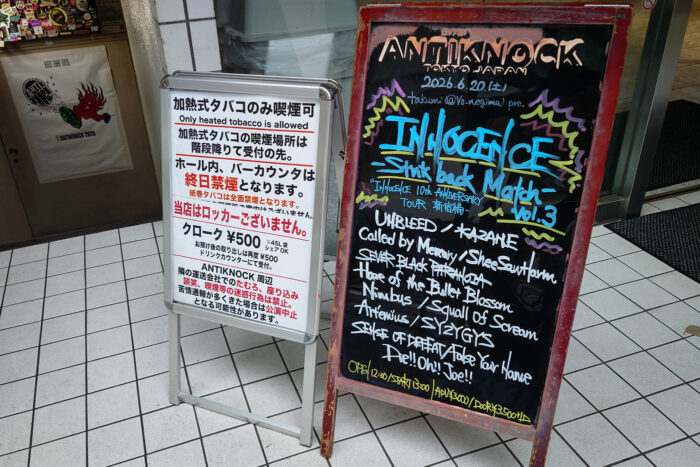 加熱式タバコのみ喫煙可
Only heated tobacco is allowed
加熱式タバコの喫煙場所は
階段降りて受付の先。
ホール内、バーカウンタは
終日禁煙となります。
紙巻タバコは全面禁煙となります。
当店はロッカーございません。
クローク ¥500
※45L 袋
シェア OK
お預け後の取り出しは再度 ¥500
ドリンクカウンターにて受付。
ANTIKNOCK 周辺
隣の運送会社でのたむろ、座り込み
談笑、喫煙等の迷惑行為は禁止。
苦情通報が多くきた場合は公演中止
となる可能性があります。
ANTIKNOCK
TOKYO JAPAN
2026.6.20.(土)
takumi (Vo.negima) pre.
INNOCENCE
-Strik back Match-
Vol.3
"INNOCENCE 10th ANNIVERSARY
TOUR 新宿編"
UNBLEED / KAZANE
Called by Memory / SheeSawtfarm
SEVER BLACK PARANOIA
Hope of the Bullet Blossom
Nimbus / Squall of Scream
Artemius / SYZYGYS
SENSE OF DEFEAT / False Your Name
Die!! Oh!! Joe!!
OPEN / 12:30 / START 13:00 / ADV ¥3000 / DOOR ¥3500 +1D
ANTIKNOCK 2025